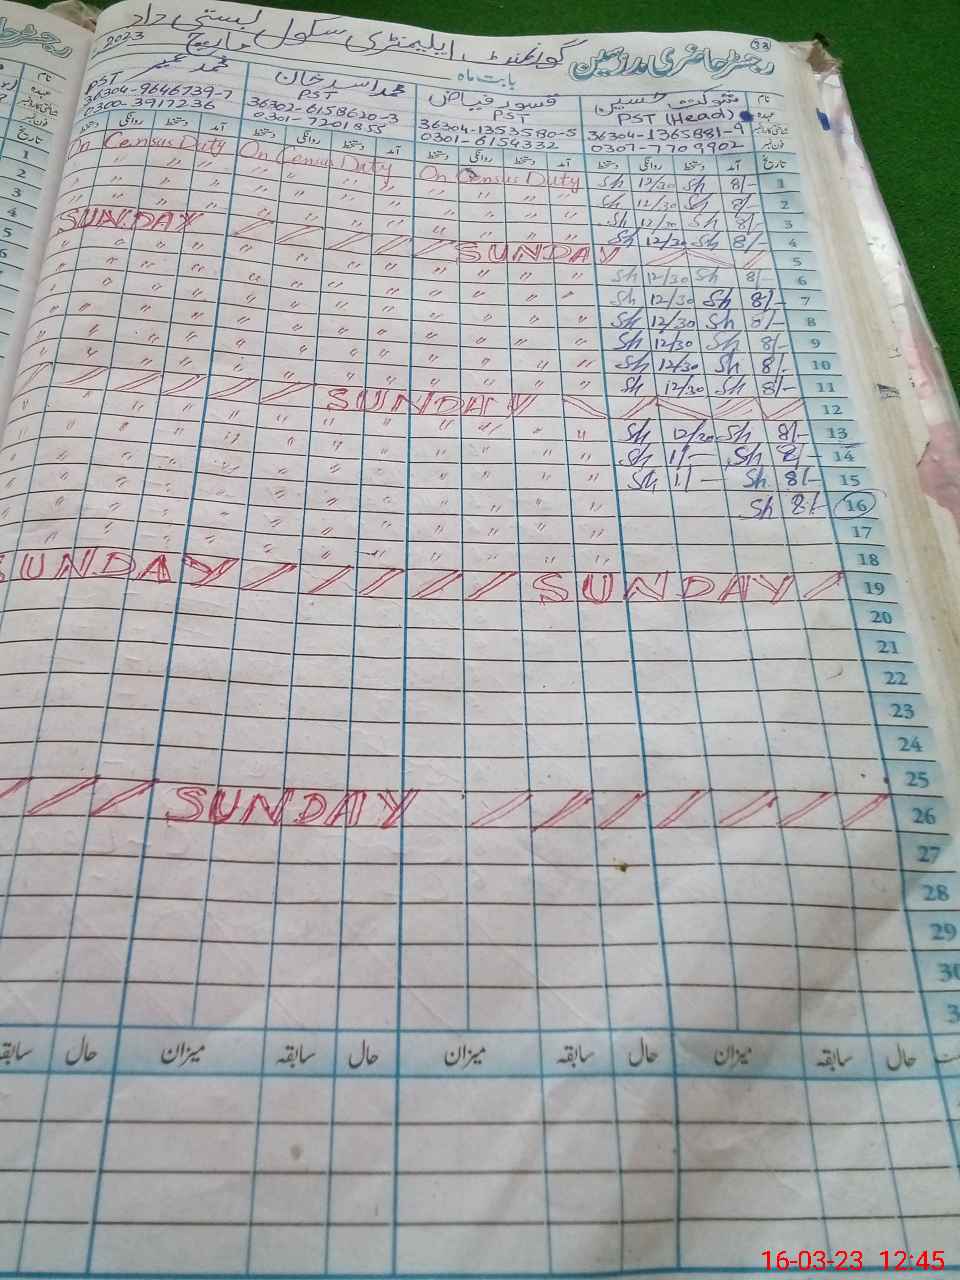 33
رجسٹر حاضری مدرسین گورنمنٹ ایلیمنٹری سکول بستی داد
بابت ماہ مارچ 2023
نام شوکت حسین قسور فیاض محمد اسید خان محمد عمیر
عہدہ PST (Head) PST PST PST
شناختی کارڈ نمبر 36304-1365881-9 36304-1353580-5 36302-6158620-3 36304-9646739-7
فون نمبر 0307-7709902 0301-6154332 0301-7201855 0300-3917236
تاریخ آمد دستخط روانگی دستخط آمد دستخط روانگی دستخط آمد دستخط روانگی دستخط آمد دستخط
1 8/- Sh 12/30 Sh On Census Duty On Census Duty On Census Duty
2 8/- Sh 12/30 Sh " " " " " " " " " "
3 8/- Sh 12/30 Sh " " " " " " " " " "
4 8/- Sh 12/30 Sh " " " " " " " " " "
5 SUNDAY SUNDAY
6 8/- Sh 12/30 Sh " " " " " " " " " "
7 8/- Sh 12/30 Sh " " " " " " " " " "
8 8/- Sh 12/30 Sh " " " " " " " " " "
9 8/- Sh 12/30 Sh " " " " " " " " " "
10 8/- Sh 12/30 Sh " " " " " " " " " "
11 8/- Sh 12/30 Sh " " " " " " " " " "
12 SUNDAY
13 8/- Sh 12/20 Sh " " " " " " " " " "
14 8/- Sh 1/- Sh " " " " " " " " " "
15 8/- Sh 1/- Sh " " " " " " " " " "
16 8/- Sh " " " " " " " " " "
17 " " " " " " " " " "
18 " " " " " " " " " "
19 SUNDAY SUNDAY
20
21
22
23
24
25
26 SUNDAY
27
28
29
30
حال سابقہ میزان حال سابقہ میزان حال سابقہ میزان حال
16-03-23 12:45